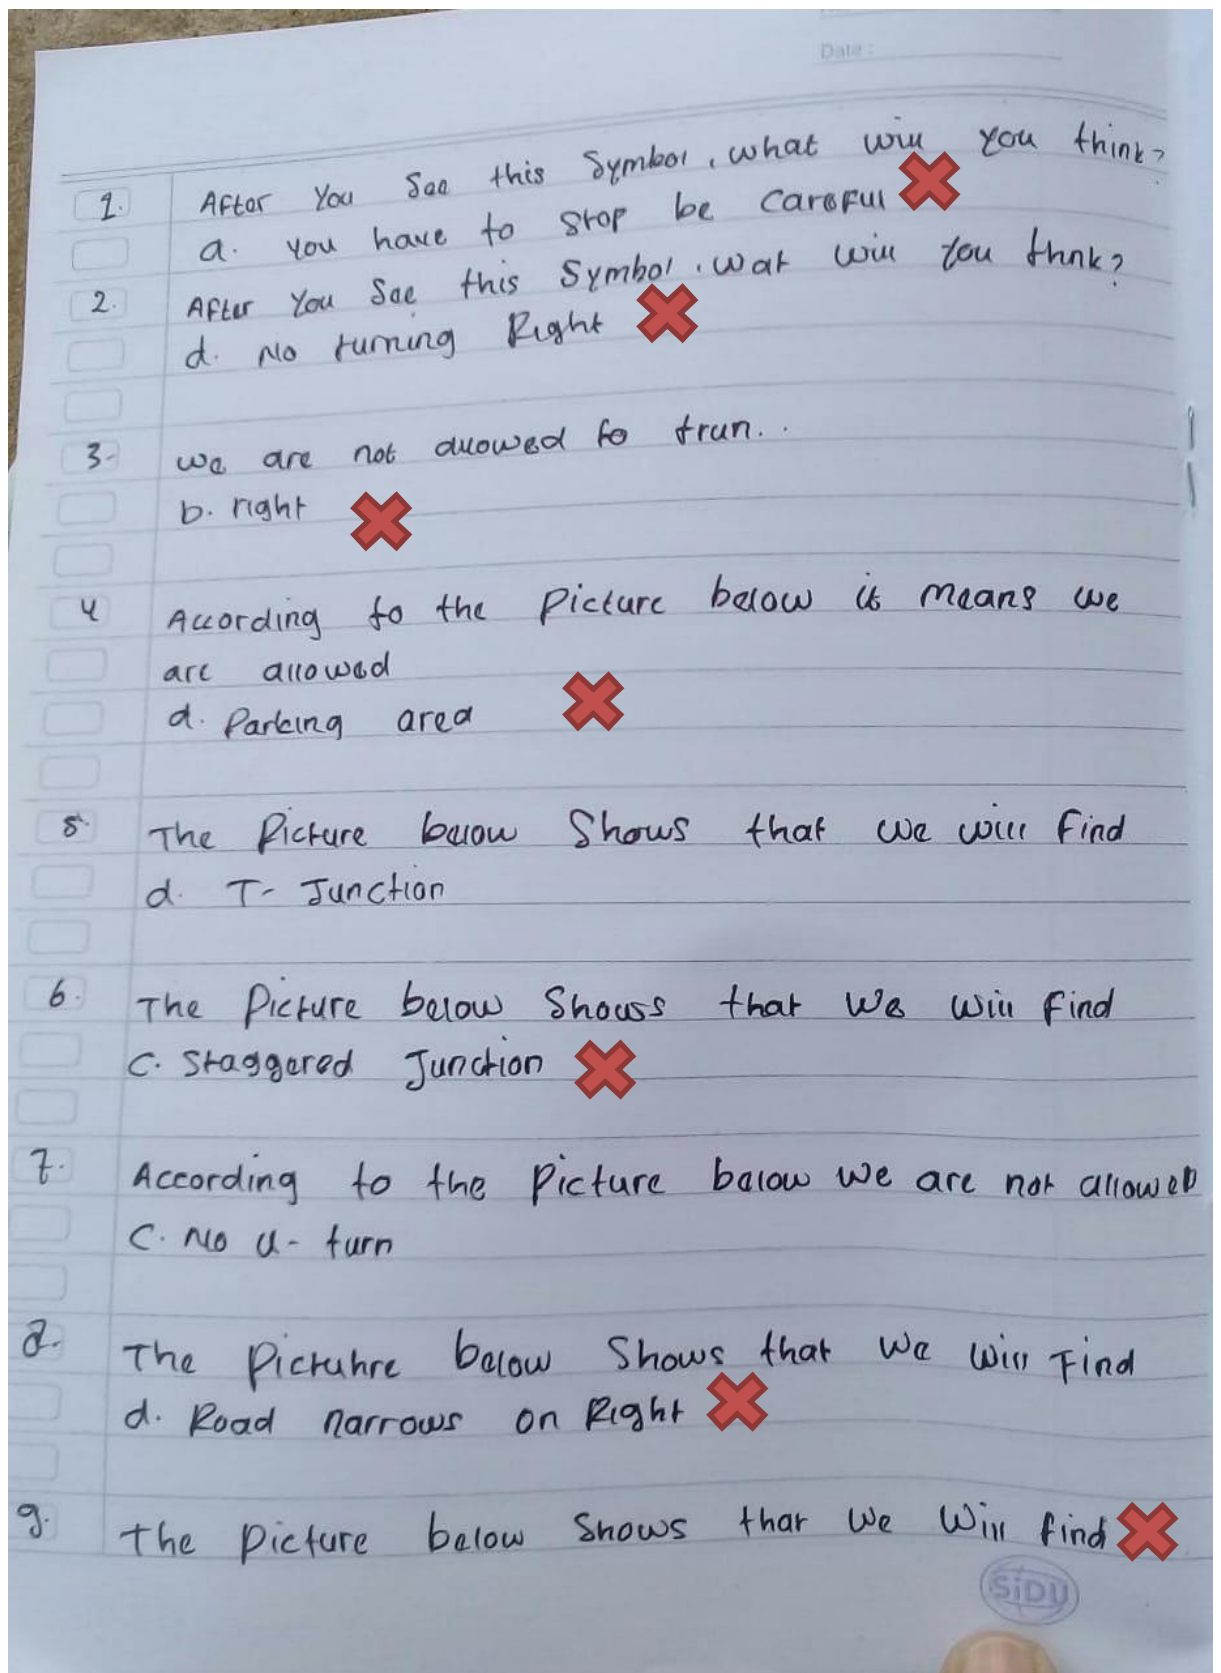 Date :
1. After You See this Symbol, what will you think?
a. you have to stop be careful
2. After You See this Symbol, wat will you thnk?
d. No turning Right
3- we are not allowed to trun..
b. right
4 According to the Picture below it means we
are allowed
d. Parking area
5. The Picture below Shows that we will find
d. T- Junction
6. The Picture below Shouss that we will find
C. Staggered Junction
7. According to the Picture below we are not allowed
C. No U- turn
8. The Pictuhre below Shows that we will Find
d. Road narrows on Right
9. The picture below Shows that we will find
SiDU